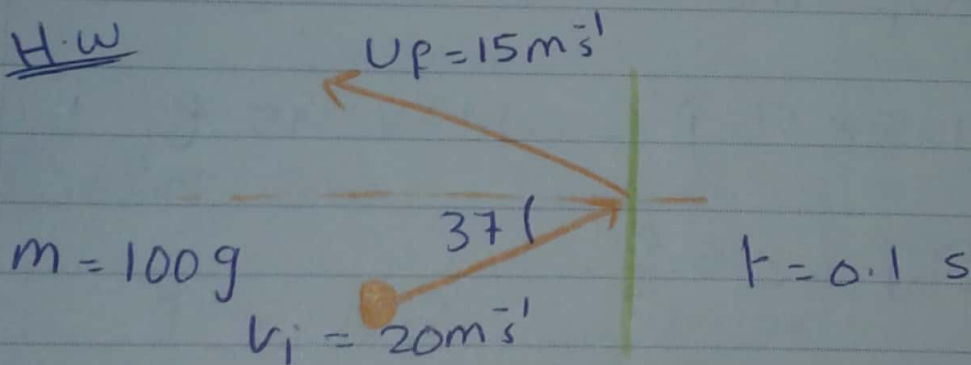 H.W
Uf = 15 m s⁻¹
37
m = 100 g
t = 0.1 s
Vi = 20 m s⁻¹